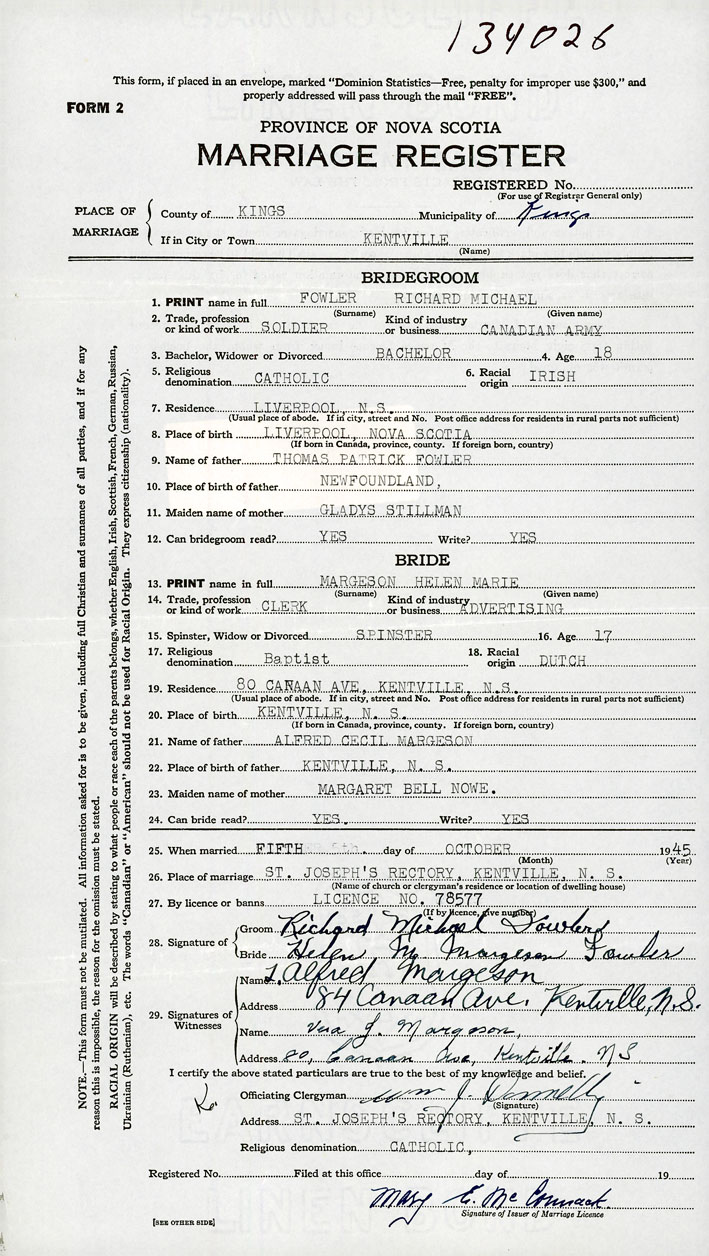 134026
This form, if placed in an envelope, marked "Dominion Statistics—Free, penalty for improper use $300," and
properly addressed will pass through the mail "FREE".
FORM 2
PROVINCE OF NOVA SCOTIA
MARRIAGE REGISTER
REGISTERED No.
(For use of Registrar General only)
PLACE OF MARRIAGE
County of KINGS Municipality of Kings
If in City or Town KENTVILLE
(Name)
BRIDEGROOM
1. PRINT name in full FOWLER RICHARD MICHAEL
(Surname) (Given name)
2. Trade, profession or kind of work SOLDIER Kind of industry or business CANADIAN ARMY
3. Bachelor, Widower or Divorced BACHELOR 4. Age 18
5. Religious denomination CATHOLIC 6. Racial origin IRISH
7. Residence LIVERPOOL, N.S.
(Usual place of abode. If in city, street and No. Post office address for residents in rural parts not sufficient)
8. Place of birth LIVERPOOL, NOVA SCOTIA
(If born in Canada, province, county. If foreign born, country)
9. Name of father THOMAS PATRICK FOWLER
10. Place of birth of father NEWFOUNDLAND,
11. Maiden name of mother GLADYS STILLMAN
12. Can bridegroom read? YES Write? YES
BRIDE
13. PRINT name in full MARGESON HELEN MARIE
(Surname) (Given name)
14. Trade, profession or kind of work CLERK Kind of industry or business ADVERTISING
15. Spinster, Widow or Divorced SPINSTER 16. Age 17
17. Religious denomination Baptist 18. Racial origin DUTCH
19. Residence 80 CANAAN AVE, KENTVILLE, N.S.
(Usual place of abode. If in city, street and No. Post office address for residents in rural parts not sufficient)
20. Place of birth KENTVILLE, N. S.
(If born in Canada, province, county. If foreign born, country)
21. Name of father ALFRED CECIL MARGESON
22. Place of birth of father KENTVILLE, N. S.
23. Maiden name of mother MARGARET BELL NOWE.
24. Can bride read? YES. Write? YES
25. When married FIFTH day of OCTOBER 1945.
(Month) (Year)
26. Place of marriage ST. JOSEPH'S RECTORY, KENTVILLE, N. S.
(Name of church or clergyman's residence or location of dwelling house)
27. By licence or banns LICENCE NO. 78577
(If by licence, give number)
28. Signature of
Groom Richard Michael Fowler
Bride Helen M. Margeson Fowler
29. Signatures of Witnesses
Name Alfred Margeson
Address 84 Canaan Ave. Kentville, N.S.
Name Vera J. Margeson,
Address 80, Canaan Ave, Kentville. NS
I certify the above stated particulars are true to the best of my knowledge and belief.
Officiating Clergyman Wm J. Donnelly
(Signature)
Address ST. JOSEPH'S RECTORY, KENTVILLE, N. S.
Religious denomination CATHOLIC,
Registered No. Filed at this office day of 19
Mary E. McCormack
Signature of Issuer of Marriage Licence
[SEE OTHER SIDE]
NOTE.—This form must not be mutilated. All information asked for is to be given, including full Christian and surnames of all parties, and if for any
reason this is impossible, the reason for the omission must be stated.
RACIAL ORIGIN will be described by stating to what people or race each of the parents belongs, whether English, Irish, Scottish, French, German, Russian,
Ukrainian (Ruthenian), etc. The words "Canadian" or "American" should not be used for Racial Origin. They express citizenship (nationality).